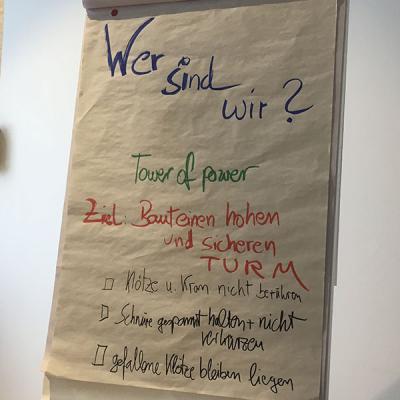 Wer
sind
wir?
Tower of power
Ziel: Baut einen hohen
und sicheren
TURM
Klötze u. Kran nicht berühren
Schnüre gespannt halten + nicht
verkürzen
gefallene Klötze bleiben liegen